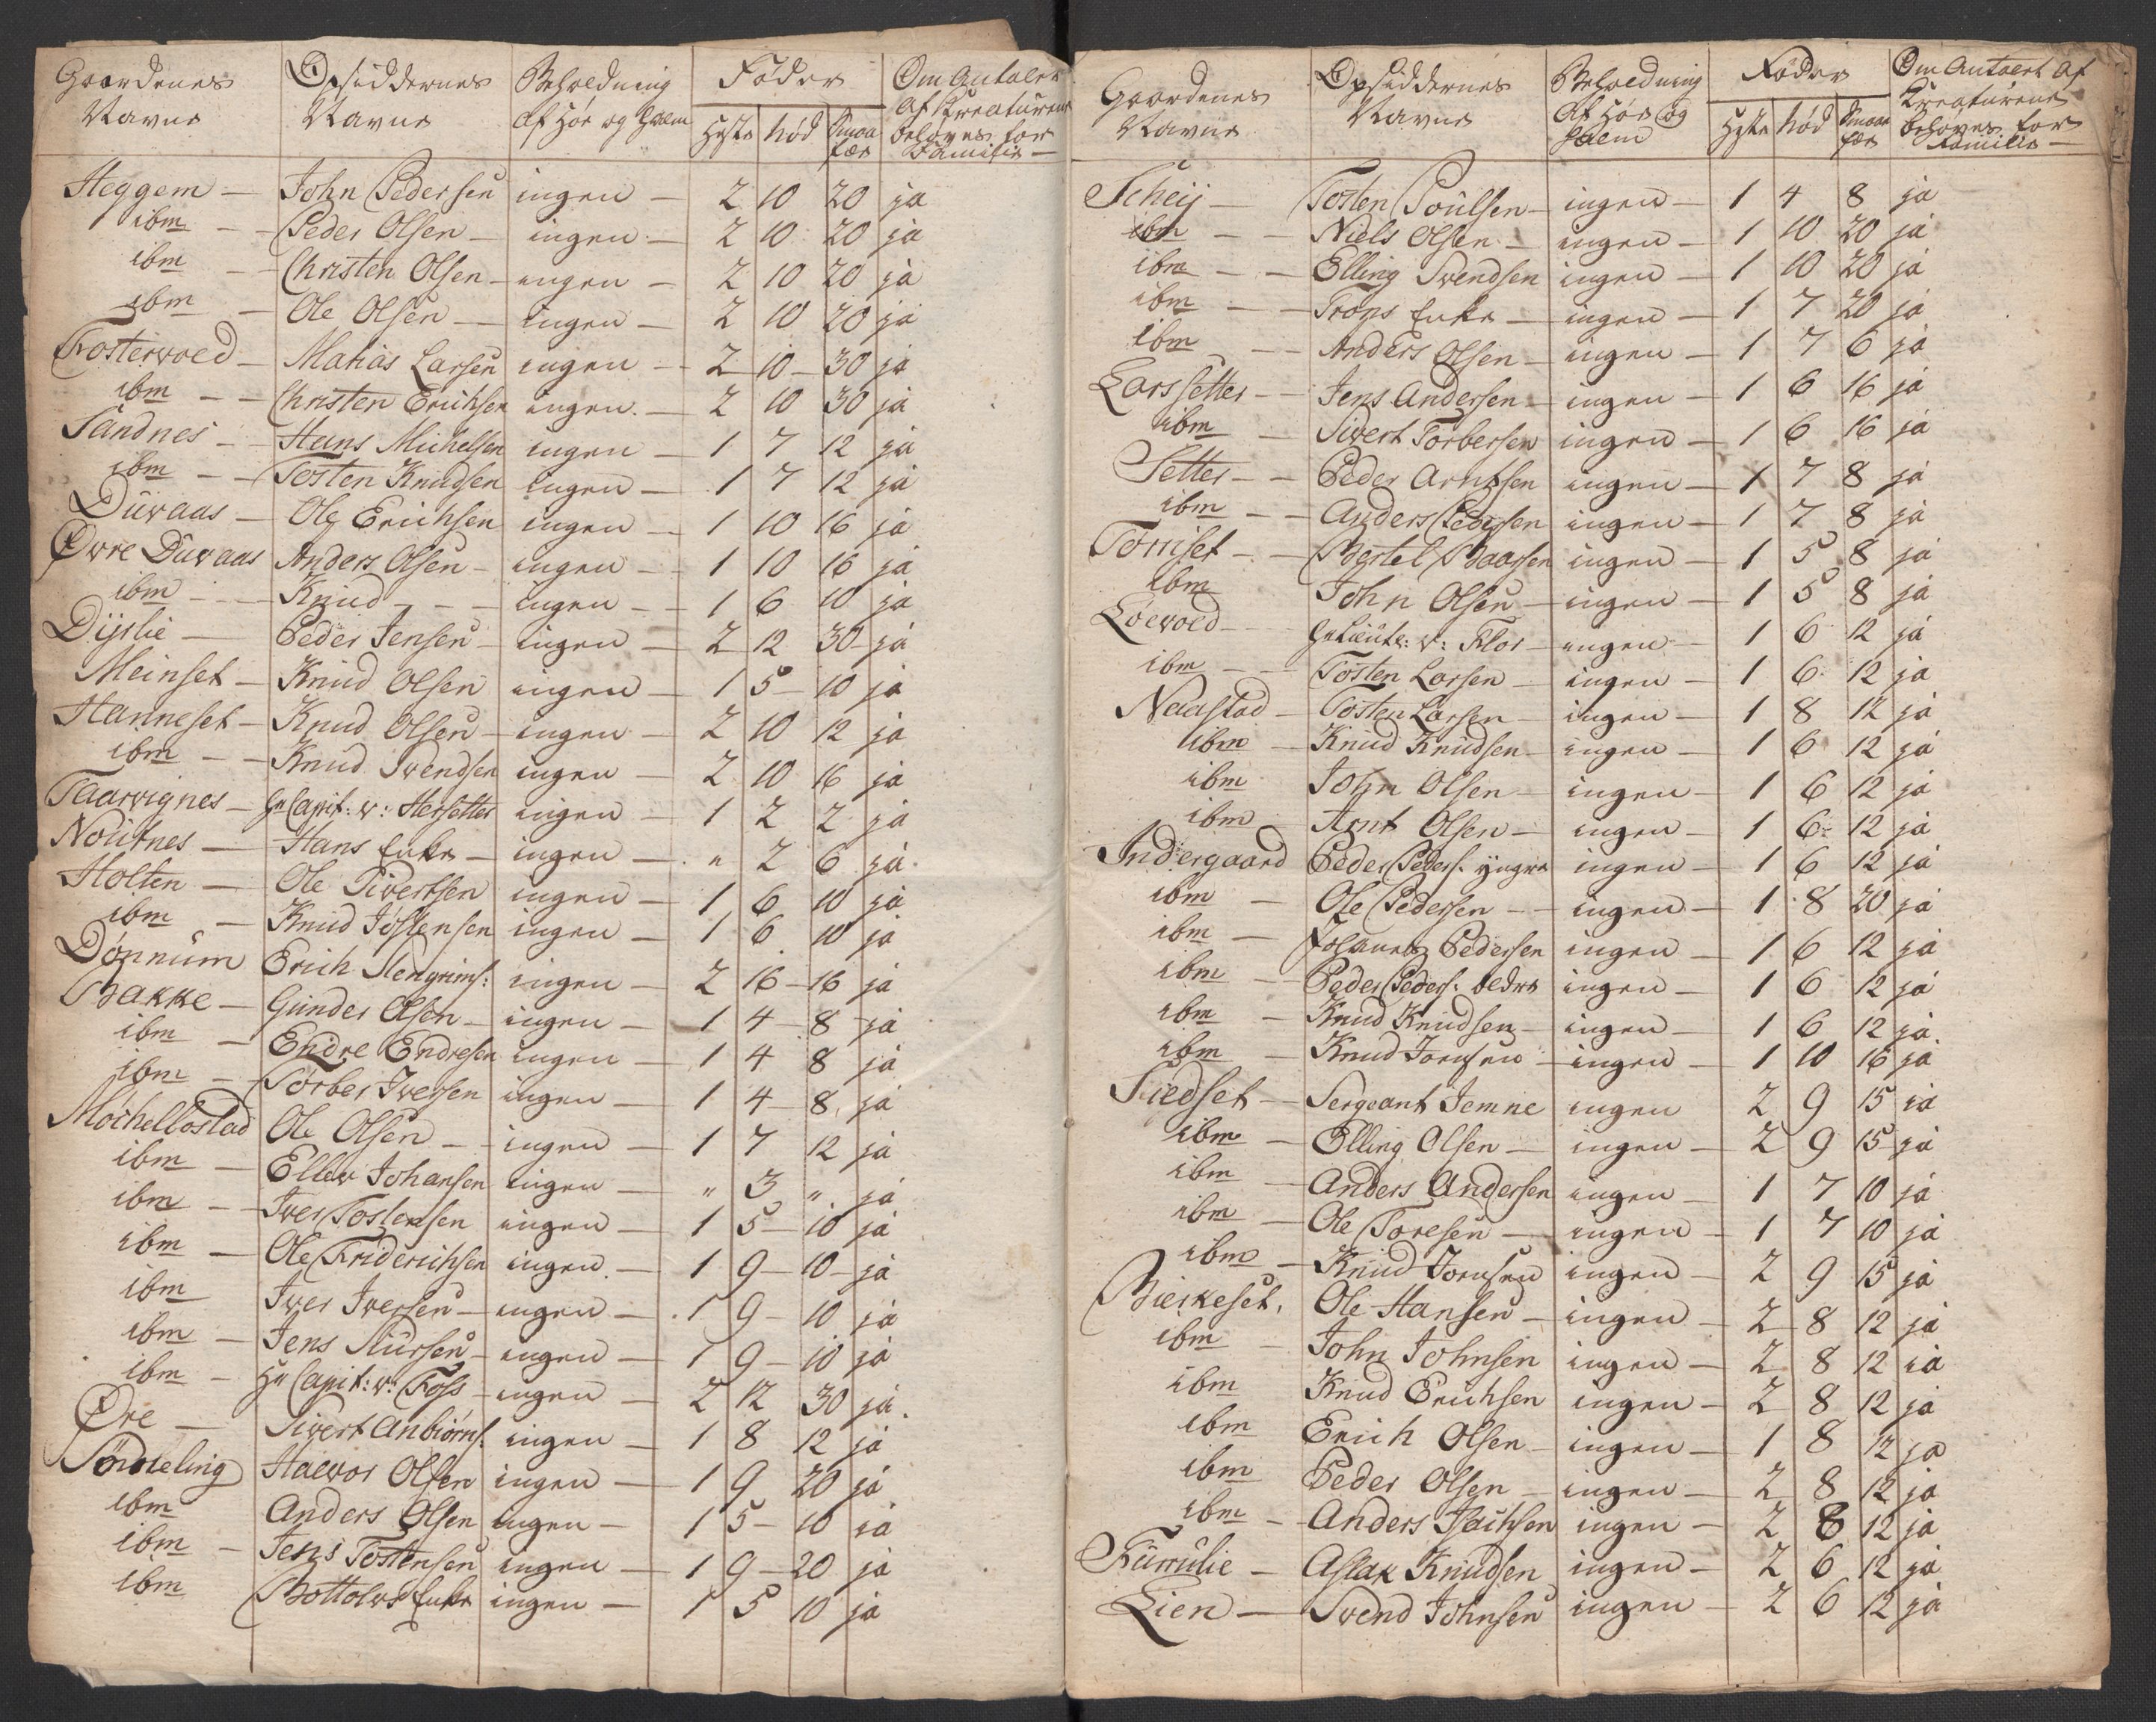 Gaardenes Navne | Opsiddernes Navne | Beholdning af Høe og Halm | Føder | Om Antalet af Kreaturene behøves for Familie
Heste | Nød | Smaa fæe
Heggem — John Pedersen ingen — 2 10 20 ja
ibm — Peder Olsen — ingen — 2 10 20 ja
ibm — Christen Olsen — ingen — 2 10 20 ja
ibm — Ole Olsen — ingen — 2 10 20 ja
Fostervold — Mathias Larsen ingen — 2 10 30 ja
ibm — Christen Erichsen ingen — 2 10 30 ja
Sandnes — Hans Michelsen ingen — 1 7 12 ja
ibm — Tosten Knudsen ingen — 1 7 12 ja
Duvaas — Ole Erichsen ingen — 1 10 16 ja
Øvre Duvaas Anders Olsen — ingen — 1 10 16 ja
ibm — Knud — ingen — 1 6 10 ja
Dyslie — Peder Jensen — ingen — 2 12 30 ja
Meinset — Knud Olsen ingen — 1 5 10 ja
Hanneset — Knud Olsen — ingen — 2 10 12 ja
ibm — Knud Svendsen ingen — 2 10 16 ja
Taarvignes — Hr Capit: v: Hersetter ingen — 1 2 2 ja
Nolitnes — Hans Enke — ingen — " 2 6 ja
Holten — Ole Sivertsen ingen — 1 6 10 ja
ibm — Knud Jostensen ingen — 1 6 10 ja
Donnum Erich Stengrims: ingen — 2 16 16 ja
Bakke — Gunder Olsen — ingen — 1 4 8 ja
ibm — Endre Endresen ingen — 1 4 8 ja
ibm — Torber Iversen ingen — 1 4 8 ja
Mochellostad Ole Olsen — ingen — 1 7 12 ja
ibm — Ellev Johansen ingen — " 3 " ja
ibm — Iver Tostensen ingen — 1 5 10 ja
ibm — Ole Friderichsen ingen — 1 9 10 ja
ibm Iver Iversen — ingen — 1 9 10 ja
ibm — Jens Siursen — ingen — 1 9 10 ja
ibm — Hr Capit: v: Foss — ingen — 2 12 30 ja
Øre — Sivert Anbiørns: ingen — 1 8 12 ja
Sondeling Halvor Olsen ingen — 1 9 20 ja
ibm Anders Olsen ingen — 1 5 10 ja
ibm — Jens Tostensen ingen — 1 9 20 ja
ibm Bottolvs Enke ingen — 1 5 10 ja
Gaardenes Navne | Opsiddernes Navne | Beholdning af Høe og Halm | Føder | Om Antalet af Kreaturene behøves for Familie —
Heste | Nød | Smaa fæe
Scheij — Tosten Poulsen — ingen — 1 4 8 ja
ibm — Niels Olsen — ingen — 1 10 20 ja
ibm — Elling Svendsen ingen — 1 10 20 ja
ibm — Trons Enke — ingen — 1 7 20 ja
ibm — Anders Olsen — ingen — 1 7 6 ja
Larssetter — Jens Andersen — ingen — 1 6 16 ja
ibm — Sivert Torbersen ingen — 1 6 16 ja
Setter — Peder Arntsen ingen — 1 7 8 ja
ibm — Anders Pedersen ingen — 1 7 8 ja
Torriset — Bertel Baarsen ingen — 1 5 8 ja
ibm John Olsen — ingen — 1 5 8 ja
Løevold — Hr Lieute: v: Flor — ingen — 1 6 12 ja
ibm — Tosten Larsen — ingen — 1 6 12 ja
Naastad — Tosten Larsen — ingen — 1 8 12 ja
ibm — Knud Knudsen — ingen — 1 6 12 ja
ibm John Olsen — ingen — 1 6 12 ja
ibm — Arnt Olsen — ingen — 1 6 12 ja
Indergaard Peder Peders: yngre ingen — 1 6 12 ja
ibm — Ole Pedersen — ingen — 1 8 20 ja
ibm — Johannes Pedersen ingen — 1 6 12 ja
ibm — Peder Peders: eldre ingen — 1 6 12 ja
ibm — Knud Knudsen — ingen — 1 6 12 ja
ibm — Knud Joensen — ingen — 1 10 16 ja
Siedset — Sergeant Jemne ingen 2 9 15 ja
ibm — Elling Olsen — ingen — 2 9 15 ja
ibm — Anders Andersen ingen — 1 7 10 ja
ibm — Ole Toresen — ingen — 1 7 10 ja
ibm — Knud Joensen ingen — 2 9 15 ja
Bierkeset, Ole Hansen — ingen — 2 8 12 ja
ibm — John Johnsen ingen — 2 8 12 ja
ibm Knud Erichsen ingen — 2 8 12 ja
ibm Erich Olsen — ingen — 1 8 12 ja
ibm Peder Olsen — ingen — 2 8 12 ja
ibm — Anders Isachsen ingen — 2 8 12 ja
Furrulie — Aslak Knudsen ingen — 2 6 12 ja
Lien — Svend Johnsen ingen — 2 6 12 ja